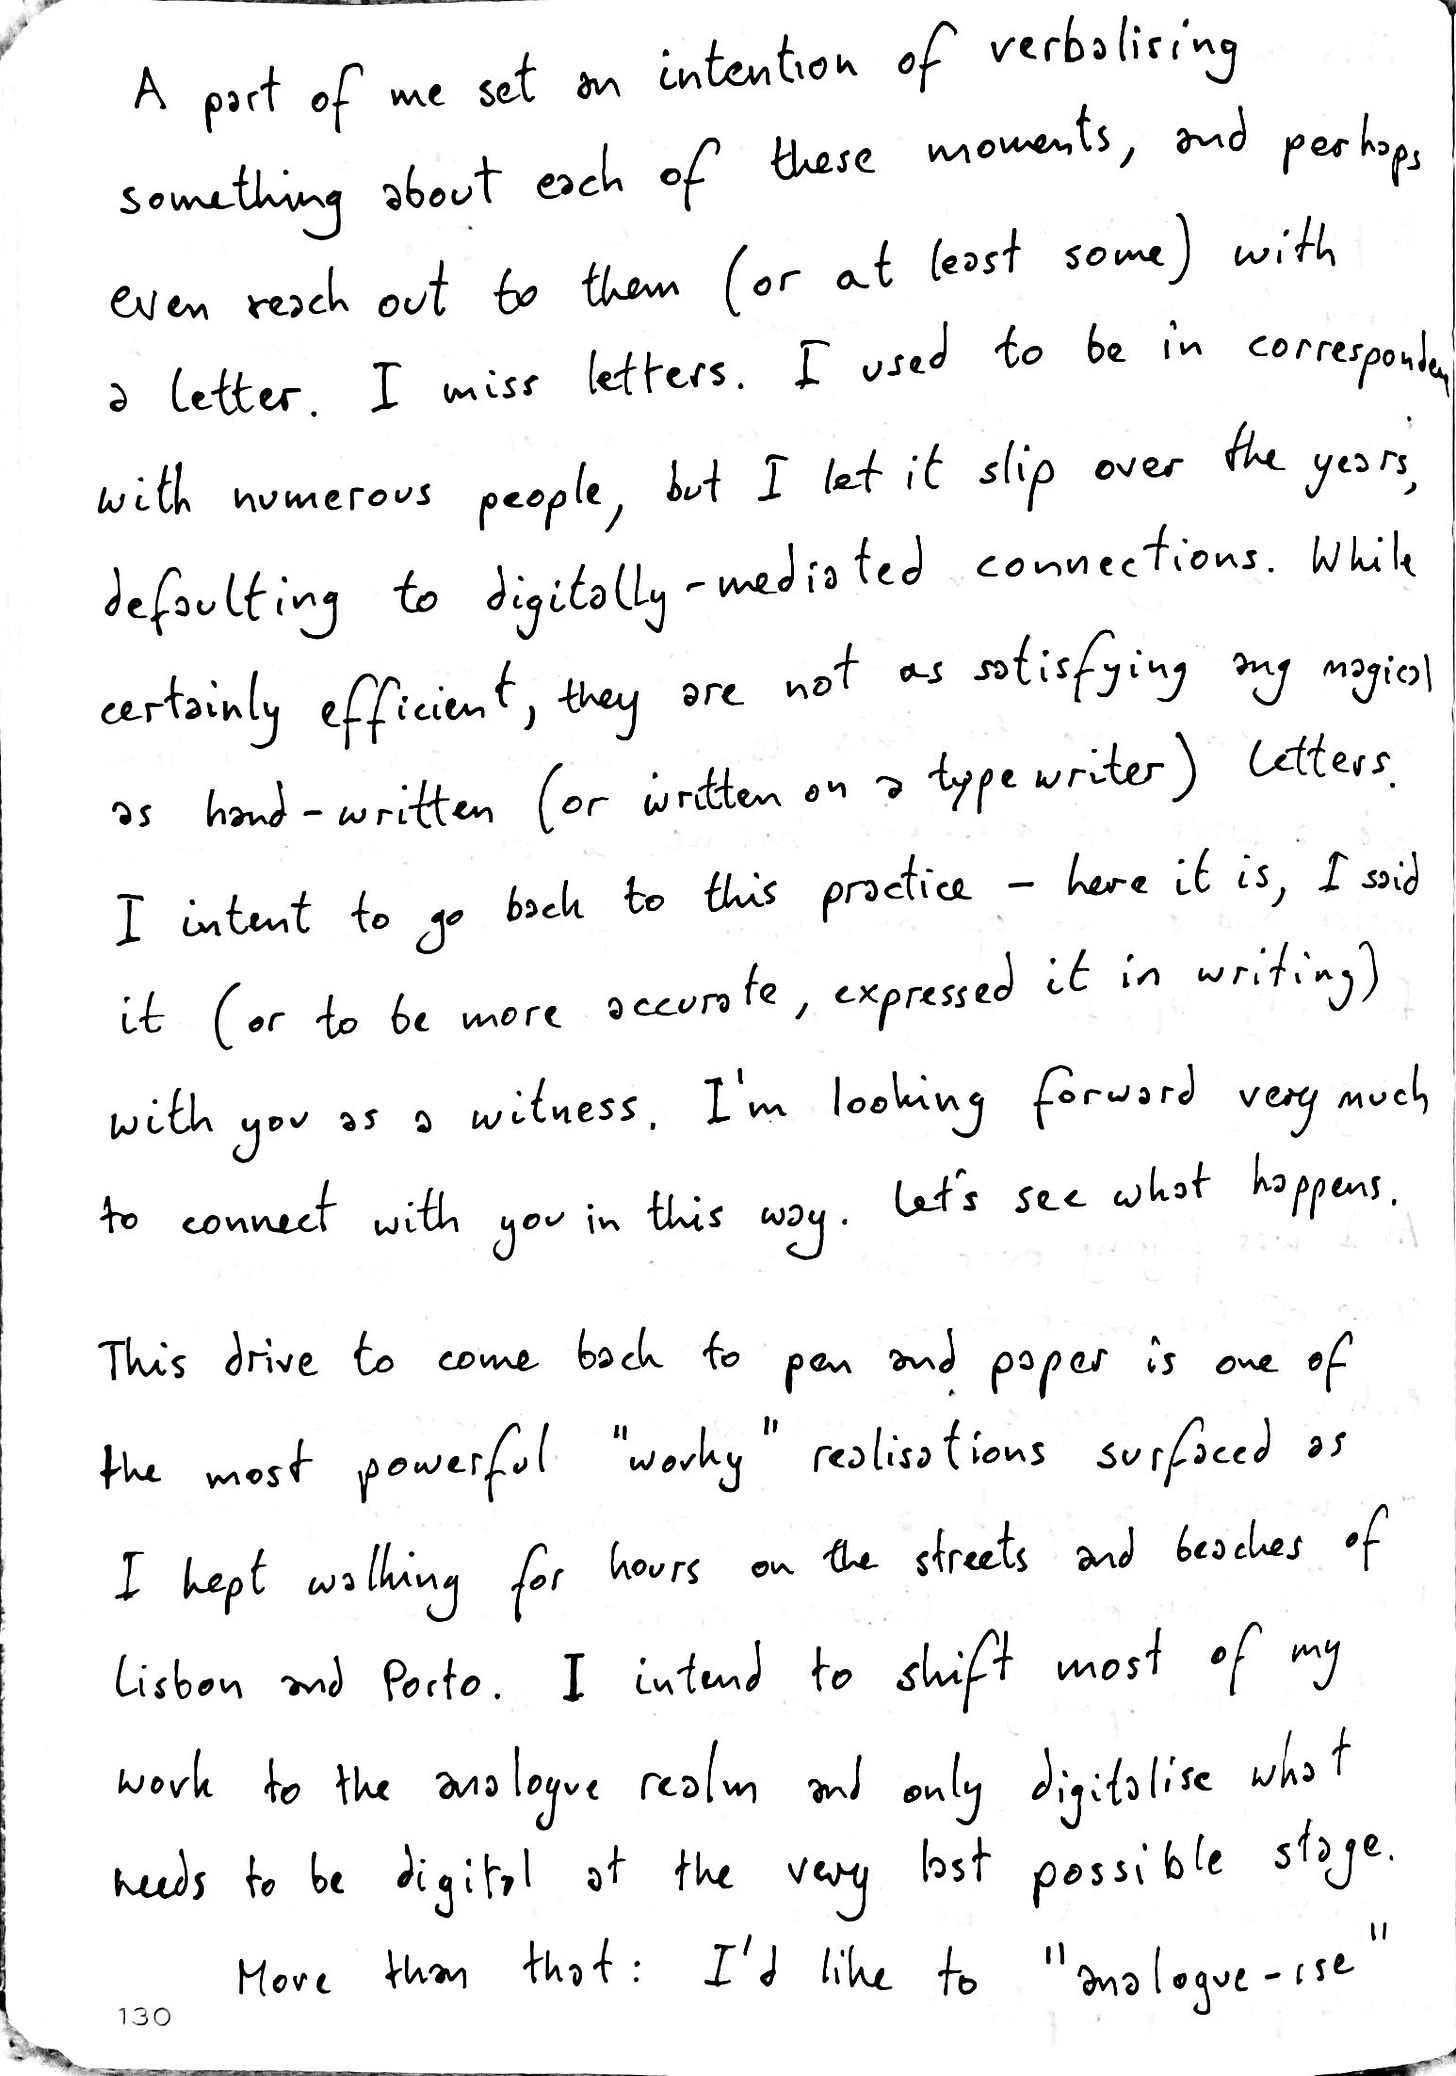 A part of me set an intention of verbalising
something about each of these moments, and perhaps
even reach out to them (or at least some) with
a letter. I miss letters. I used to be in corresponden
with numerous people, but I let it slip over the years,
defaulting to digitally-mediated connections. While
certainly efficient, they are not as satisfying ang magical
as hand-written (or written on a typewriter) letters.
I intent to go back to this practice - here it is, I said
it (or to be more accurate, expressed it in writing)
with you as a witness. I'm looking forward very much
to connect with you in this way. Let's see what happens.
This drive to come back to pen and paper is one of
the most powerful "worky" realisations surfaced as
I kept walking for hours on the streets and beaches of
Lisbon and Porto. I intend to shift most of my
work to the analogue realm and only digitalise what
needs to be digital at the very last possible stage.
More than that: I'd like to "analogue-ise"
130